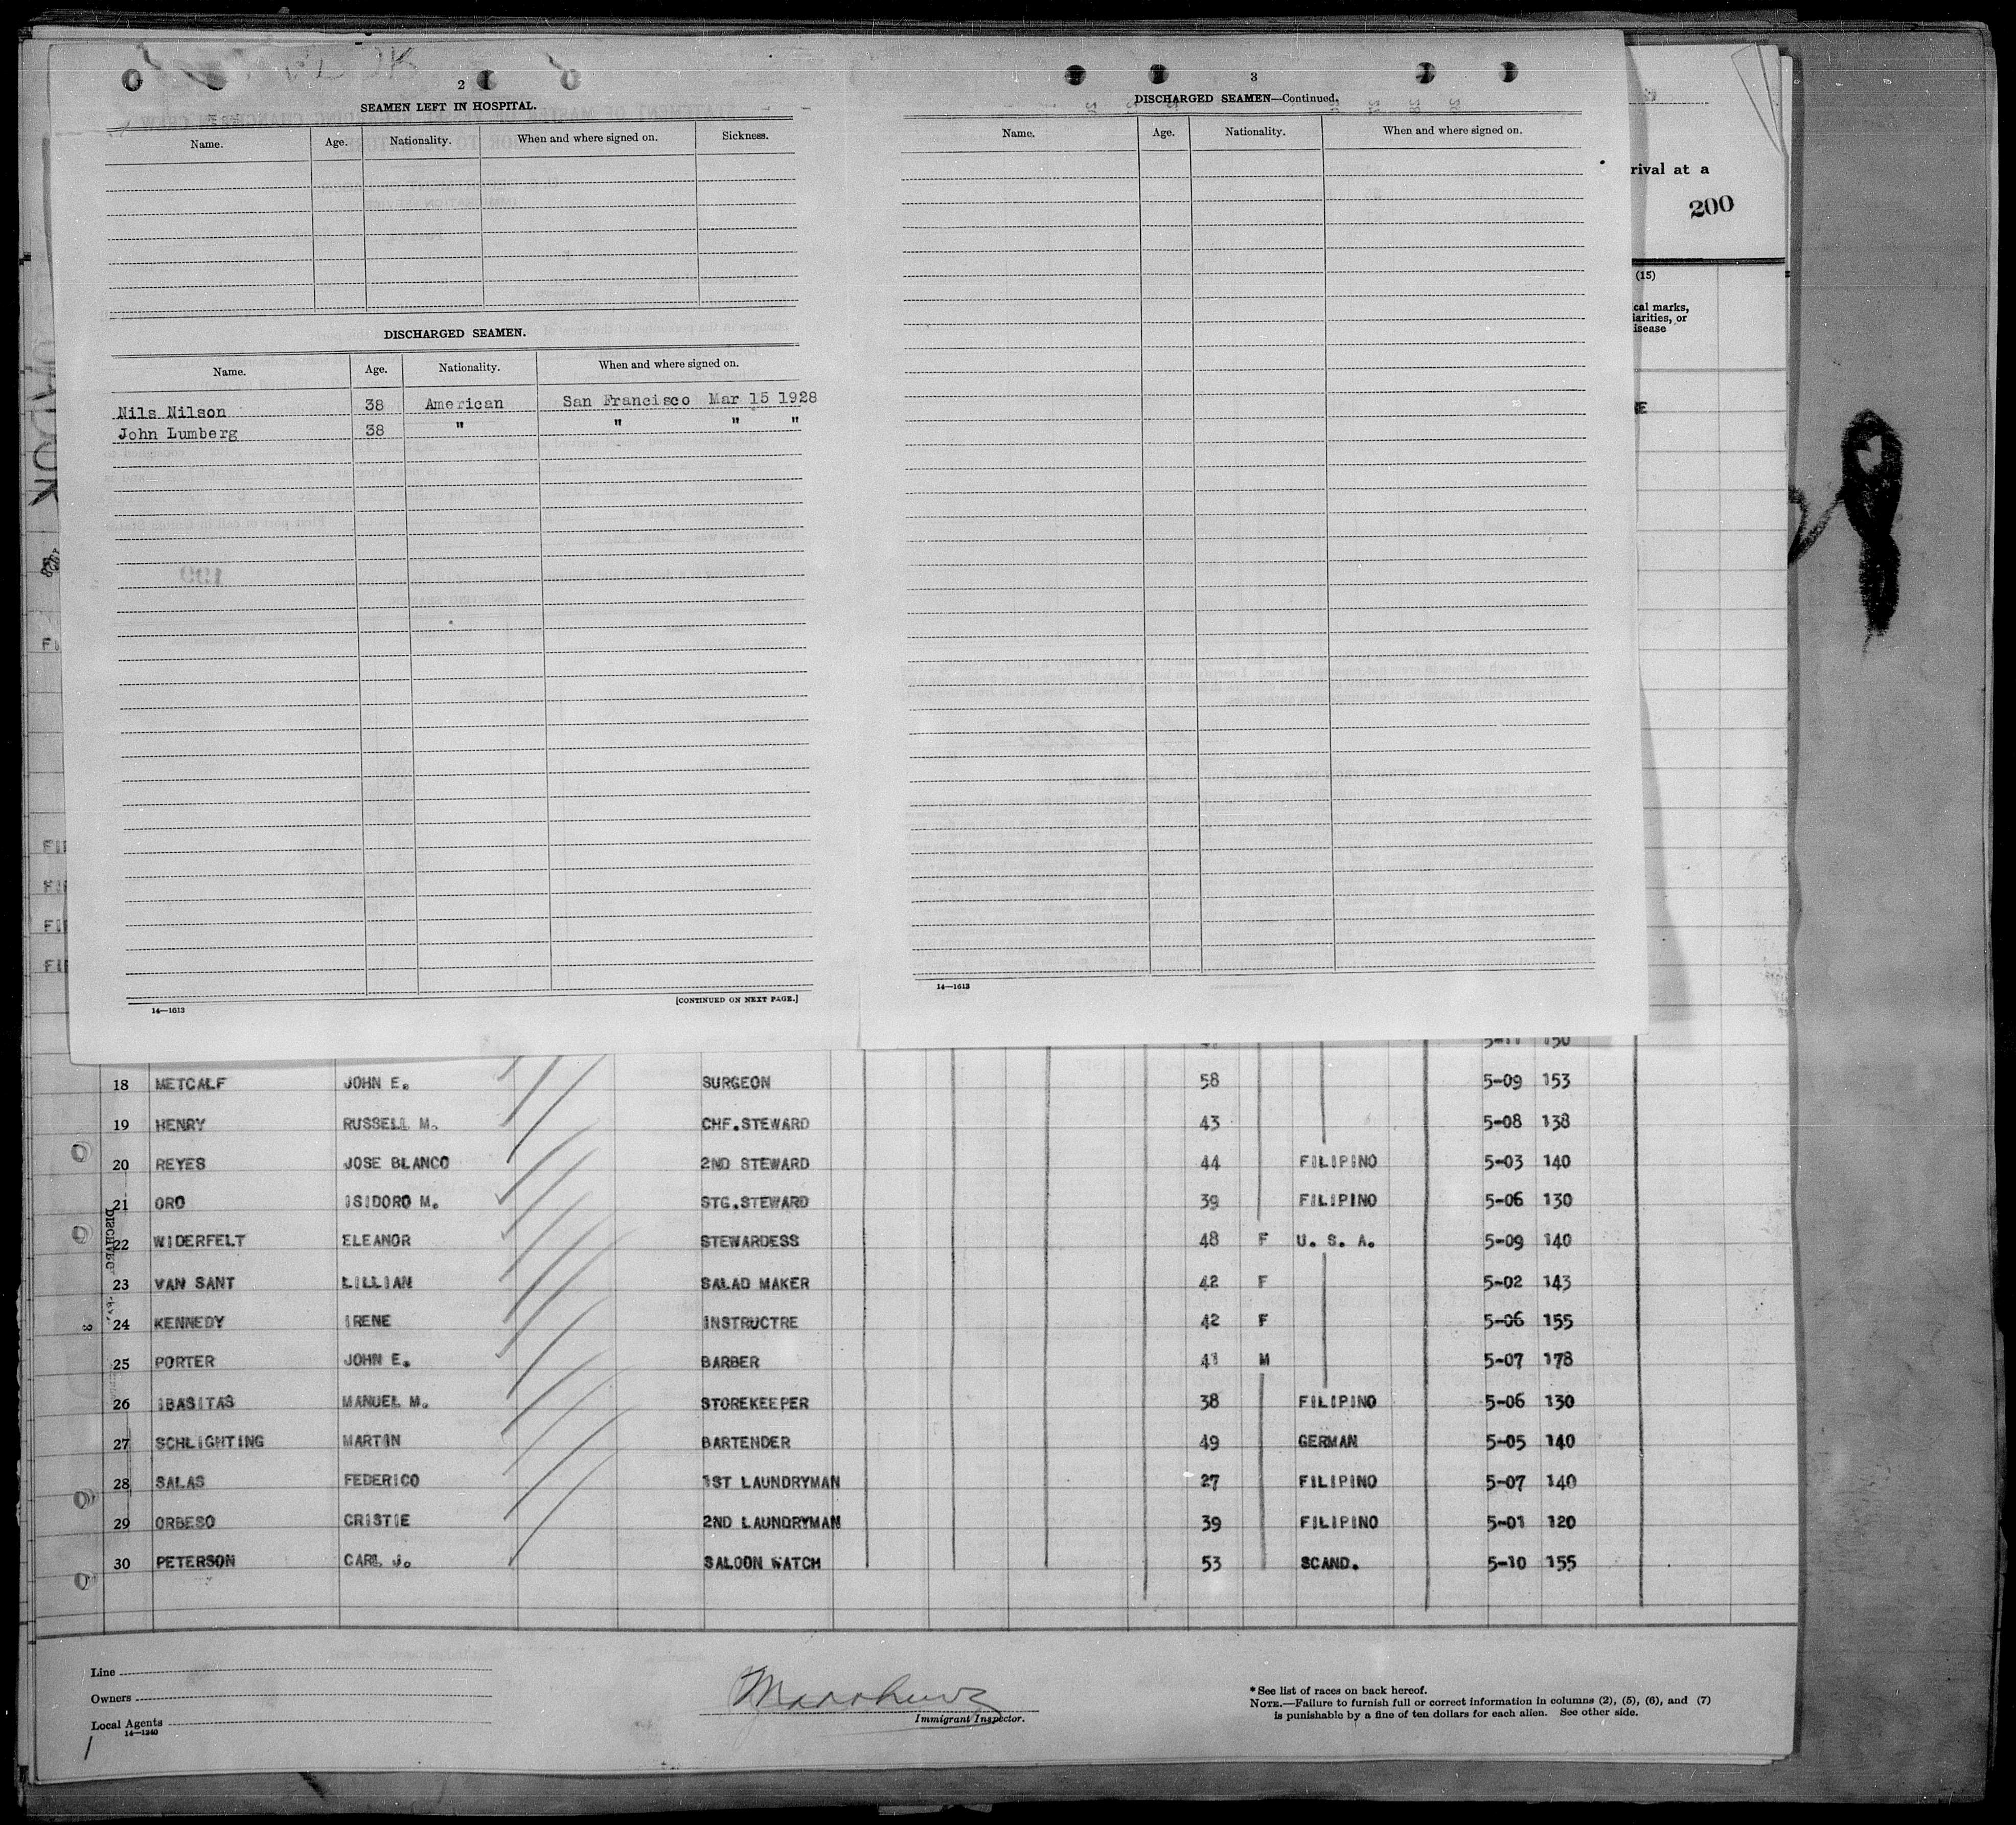 2
SEAMEN LEFT IN HOSPITAL.
Name. Age. Nationality. When and where signed on. Sickness.
DISCHARGED SEAMEN.
Name. Age. Nationality. When and where signed on.
Nils Nilson 38 American San Francisco Mar 15 1928
John Lumberg 38 " " " "
14—1613
[CONTINUED ON NEXT PAGE.]
3
DISCHARGED SEAMEN—Continued.
Name. Age. Nationality. When and where signed on.
14—1613
rival at a
200
(15)
cal marks,
iarities, or
isease
5-11 150
18 METCALF JOHN E. SURGEON 58 5-09 153
19 HENRY RUSSELL M. CHF.STEWARD 43 5-08 138
20 REYES JOSE BLANCO 2ND STEWARD 44 FILIPINO 5-03 140
21 ORO ISIDORO M. STG.STEWARD 39 FILIPINO 5-06 130
22 WIDERFELT ELEANOR STEWARDESS 48 F U. S. A. 5-09 140
23 VAN SANT LILLIAN SALAD MAKER 42 F 5-02 143
24 KENNEDY IRENE INSTRUCTRE 42 F 5-06 155
25 PORTER JOHN E. BARBER 41 M 5-07 178
26 IBASITAS MANUEL M. STOREKEEPER 38 FILIPINO 5-06 130
27 SCHLIGHTING MARTIN BARTENDER 49 GERMAN 5-05 140
28 SALAS FEDERICO 1ST LAUNDRYMAN 27 FILIPINO 5-07 140
29 ORBESO CRISTIE 2ND LAUNDRYMAN 39 FILIPINO 5-01 120
30 PETERSON CARL J. SALOON WATCH 53 SCAND. 5-10 155
Line
Owners
Local Agents
14—1240
Immigrant Inspector.
* See list of races on back hereof.
NOTE.—Failure to furnish full or correct information in columns (2), (5), (6), and (7)
is punishable by a fine of ten dollars for each alien. See other side.